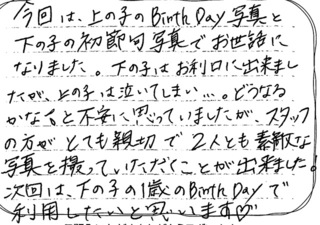 今回は、上の子のBirth Day写真と
下の子の初節句写真でお世話に
なりました。下の子はお利口に出来まし
たが、上の子は泣いてしまい…。どうなる
かな?と不安に思っていましたが、スタッフ
の方がとても親切で2人とも素敵な
写真を撮っていただくことが出来ました!
次回は、下の子の1歳のBirth Dayで
利用したいと思います♡